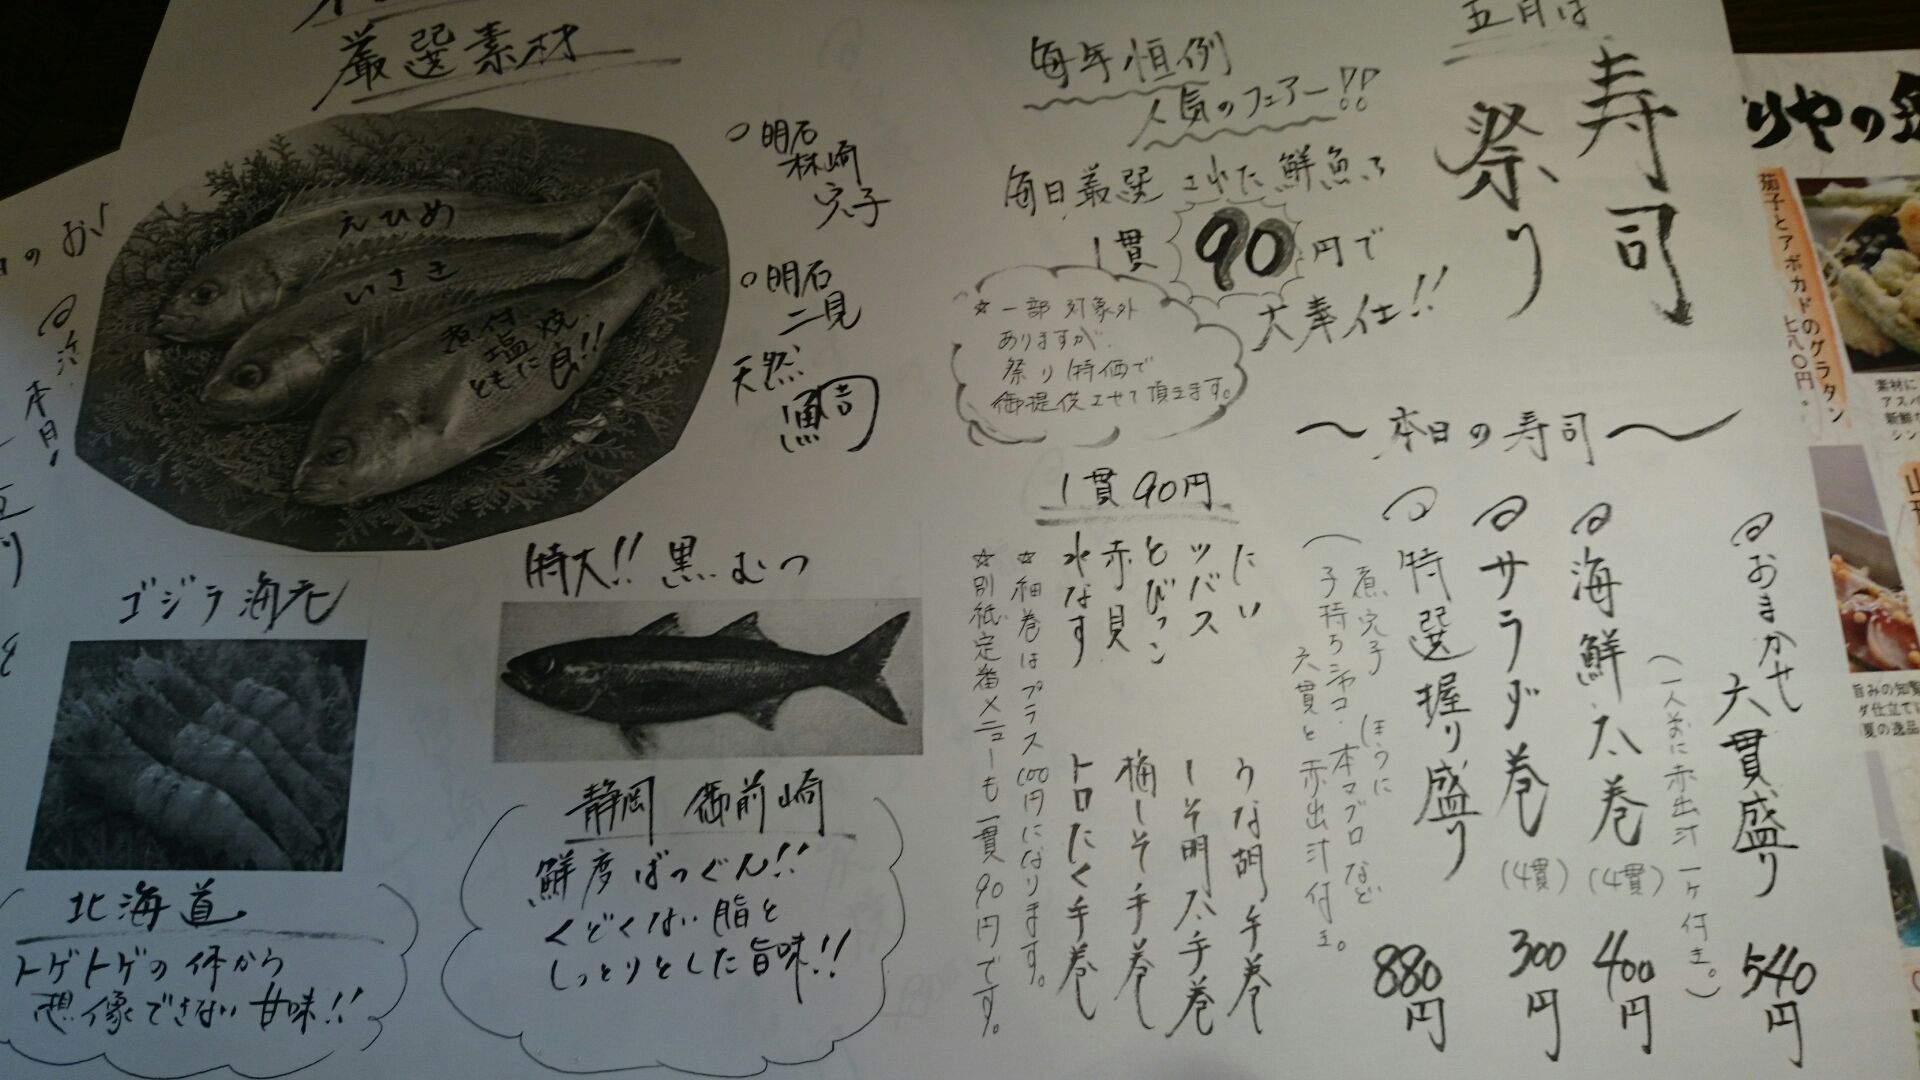 五月は
寿司
祭り
毎年恒例
人気のフェアー!!
毎日厳選された鮮魚を
1貫90円で
大奉仕!!
☆一部対象外
ありますが、
祭り特価で
御提供させて頂きます。
〜本日の寿司〜
おまかせ六貫盛り 540円
(一人前に赤出汁一ケ付き。)
海鮮太巻(4貫) 400円
サラダ巻(4貫) 300円
特選握り盛り 880円
(煮穴子 ほうに
子持ちシャコ・本マグロなど
六貫と赤出汁付き。
1貫90円
たい
ツバス
とびっこ
赤貝
水なす
うな胡手巻
しそ明太手巻
梅しそ手巻
トロたく手巻
☆細巻はプラス100円になります。
☆別紙定番メニューも一貫90円です。
厳選素材
えひめ
いさき
煮付、
塩焼、
ともに良!!
明石
林崎
穴子
明石
二見
天然
鰤
特大!! 黒むつ
静岡 御前崎
鮮度ばつぐん!!
くどくない脂と
しっとりとした旨味!!
ゴジラ海老
北海道
トゲトゲの体から
想像できない甘味!!
本日!
りやの
茄子とアボカドのグラタン
七八〇円。
素材に
アスパ
新鮮
シン
旨みの知覧
ダ仕立て
夏の逸品